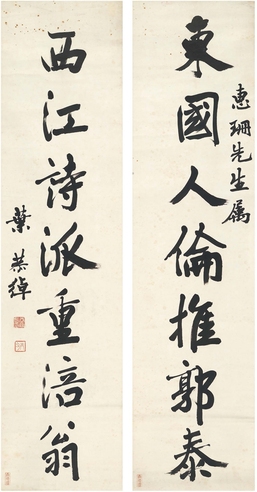 東國人倫推郭泰
惠珊先生属
西江詩派重涪翁
葉恭綽